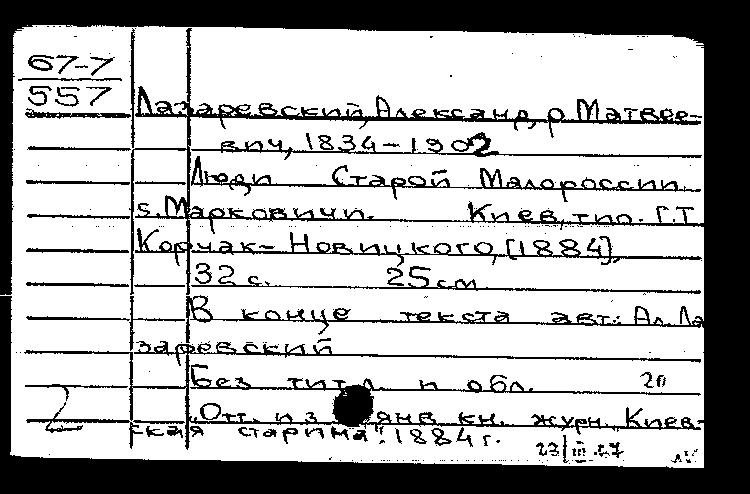 67-7
557
Лазаревский, Александр Матвее-
вич, 1834-1902
Люди Старой Малороссии.
5. Марковичи. Киев, тип. Г.Т.
Корчак-Новицкого, [1884].
32 с. 25 см
В конце текста авт.: Ал. Ла
заревский
Без тит. л. и обл. 20
"Отт. из янв. кн. журн. Киев-
ская старина". 1884 г.
23/III
2